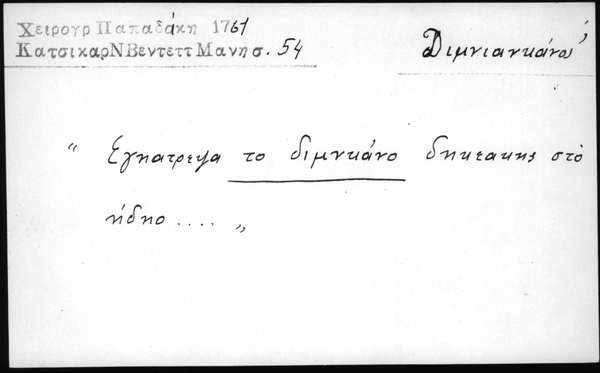 Χειρογρ Παπαδάκη 1761
Κατσικαρ Ν Βεντεττ Μανη σ. 54
Διμνιανκάνο
" Εγηατρεψα το διμνκάνο δηκεακης στὸ
ήδηο .... "